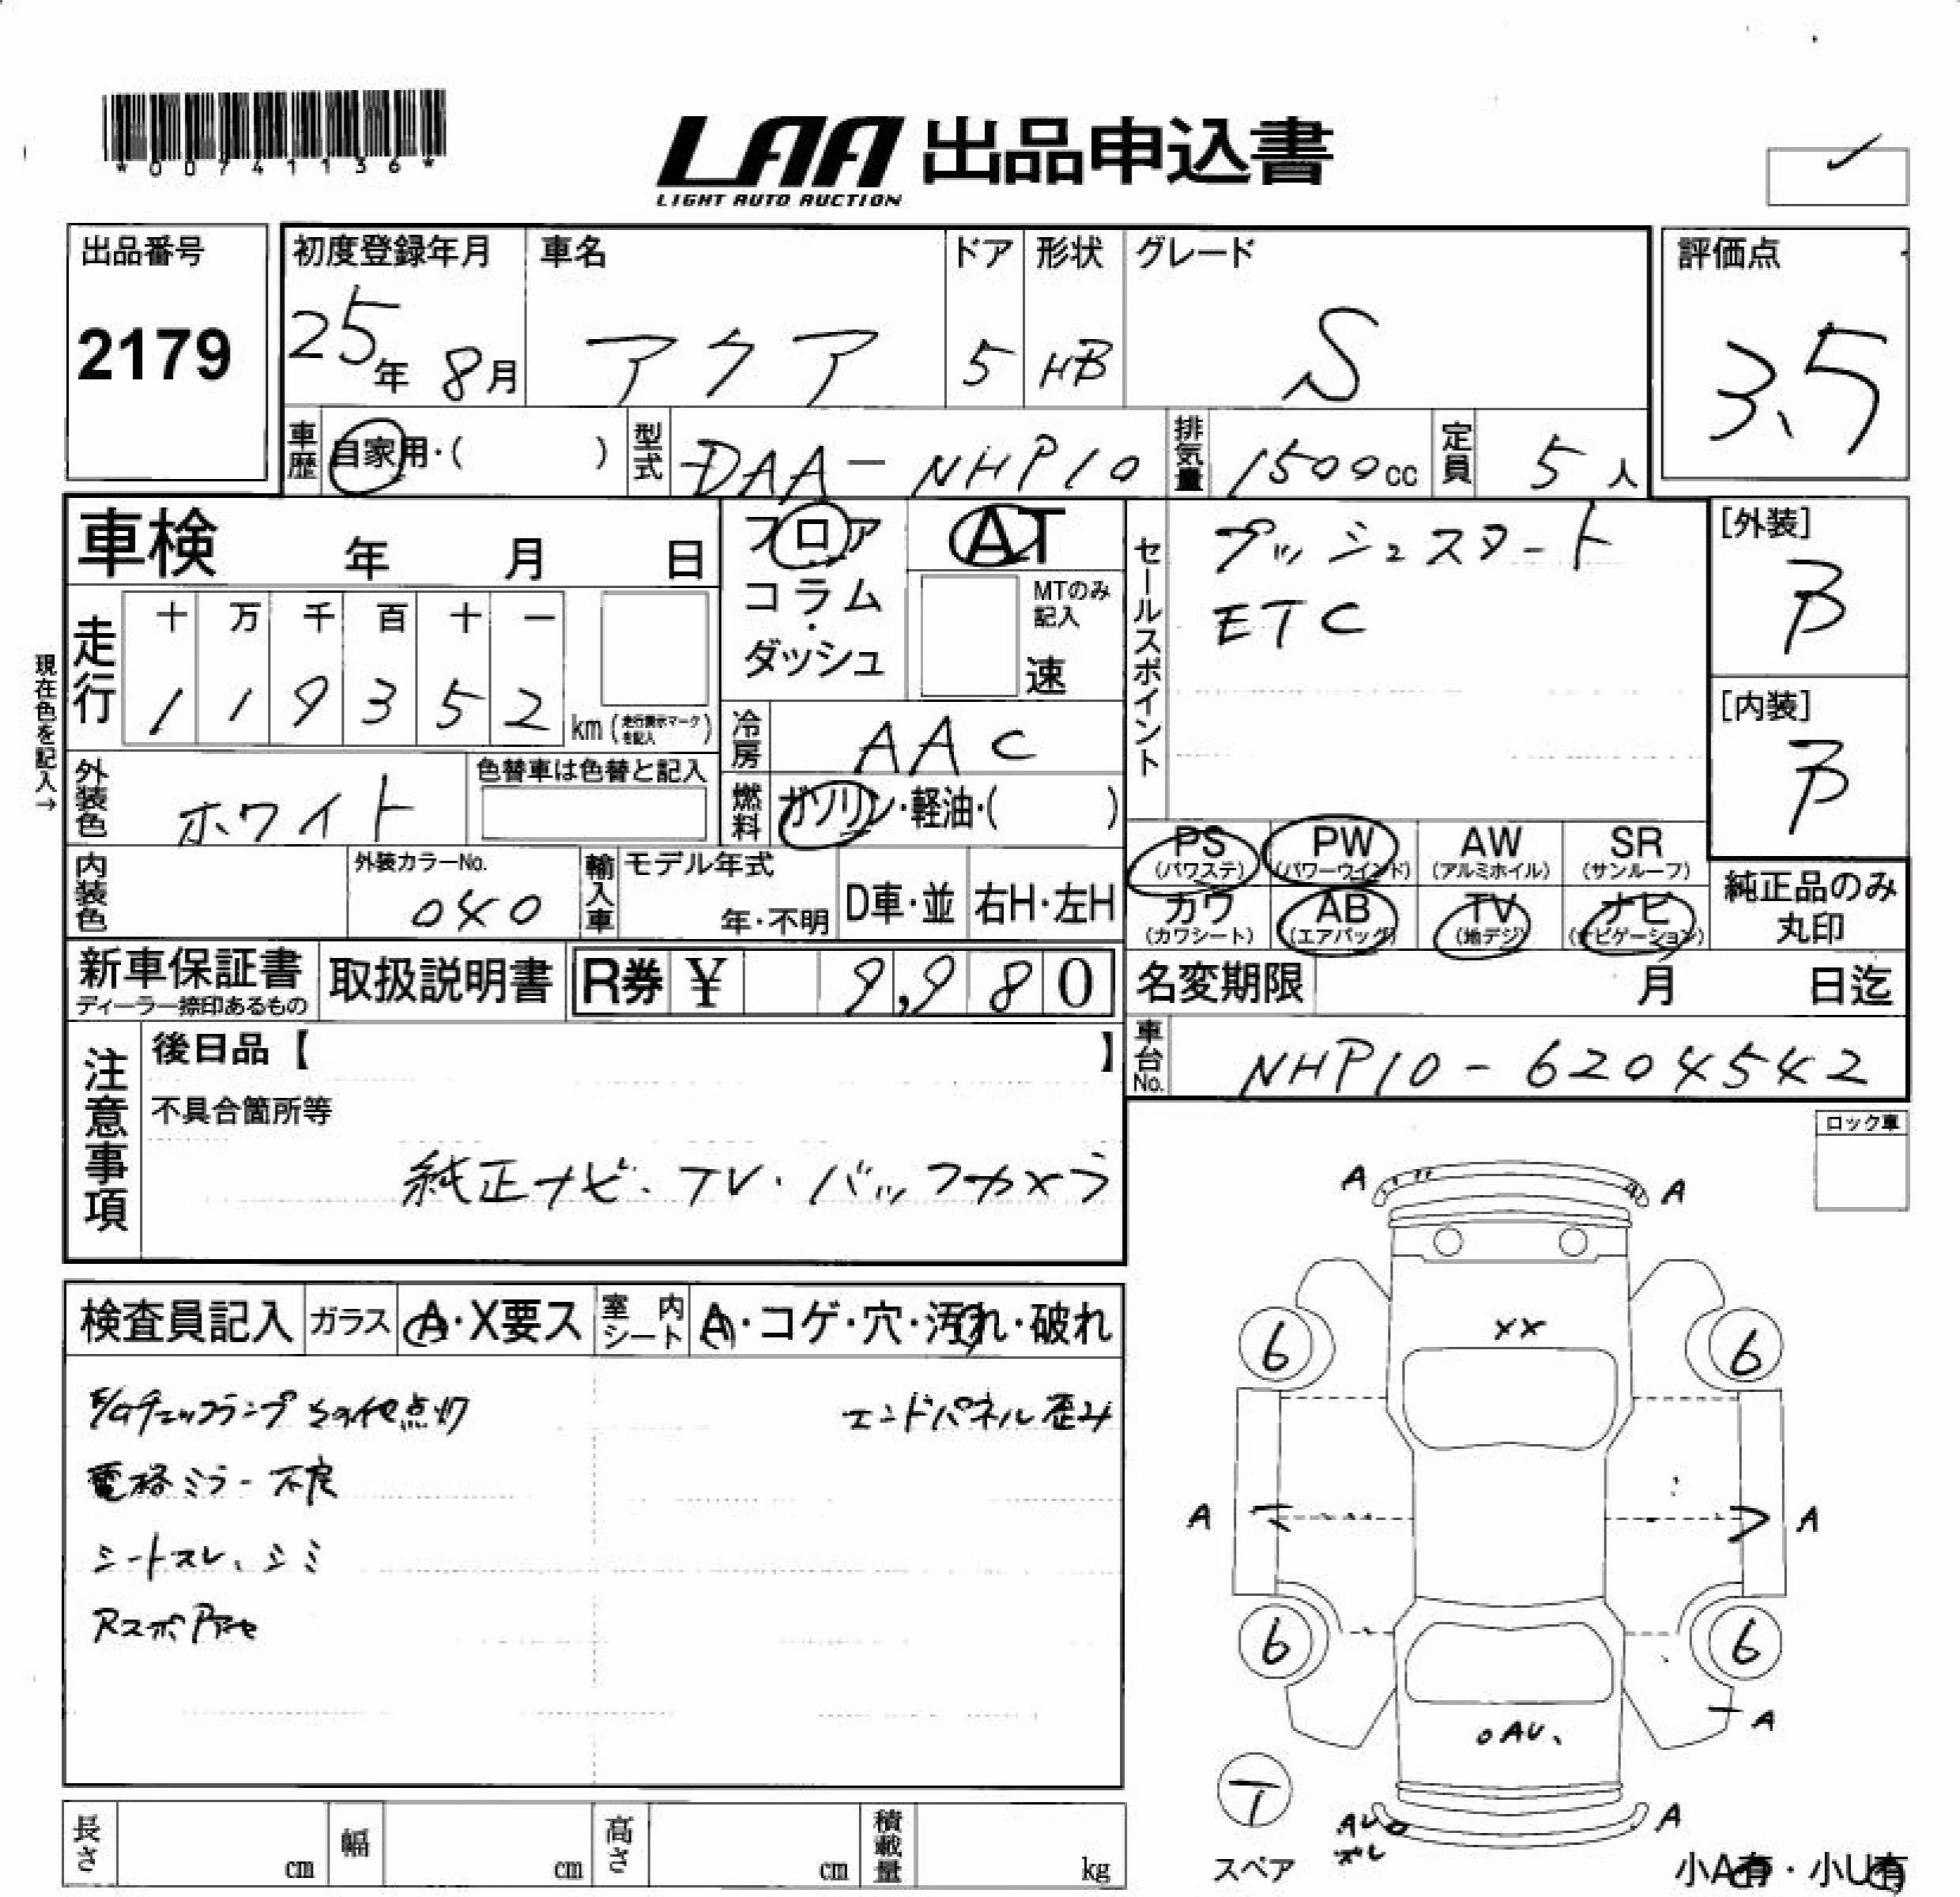 *00741136*
LAA 出品申込書
LIGHT AUTO AUCTION
出品番号
2179
初度登録年月
25年 8月
車名
アクア
ドア
5
形状
HB
グレード
S
評価点
3.5
車歴 自家用・( )
型式 DAA-NHP10
排気量 1500cc
定員 5人
車検 年 月 日
フロア
コラム・
ダッシュ
AT
MTのみ記入
速
セールスポイント
プッシュスタート
ETC
[外装]
B
[内装]
B
現在色を記入→
走行
十 万 千 百 十 一
1 1 9 3 5 2 km (走行表示マークを記入)
冷房 AAC
外装色 ホワイト
色替車は色替と記入
燃料 ガソリン・軽油・( )
PS (パワステ)
PW (パワーウインド)
AW (アルミホイル)
SR (サンルーフ)
カワ (カワシート)
AB (エアバッグ)
TV (地デジ)
ナビ (ナビゲーション)
純正品のみ
丸印
内装色
外装カラーNo.
040
輸入車
モデル年式
年・不明
D車・並
右H・左H
新車保証書
ディーラー捺印あるもの
取扱説明書
R券 ¥ 9,980
名変期限 月 日迄
車台No. NHP10-6204542
注意事項
後日品【 】
不具合箇所等
純正ナビ・TV・バックカメラ
ロック車
検査員記入
ガラス A・X要ス
室内シート A・コゲ・穴・汚れ・破れ
E/Gチェックランプその他点灯
エンドパネル歪み
電格ミラー不良
シートスレ、シミ
A A
XX
6 6
A A
6 6
A
AU
T
スペア
AU
ズレ
A
小A有・小U有
長さ cm
幅 cm
高さ cm
積載量 kg